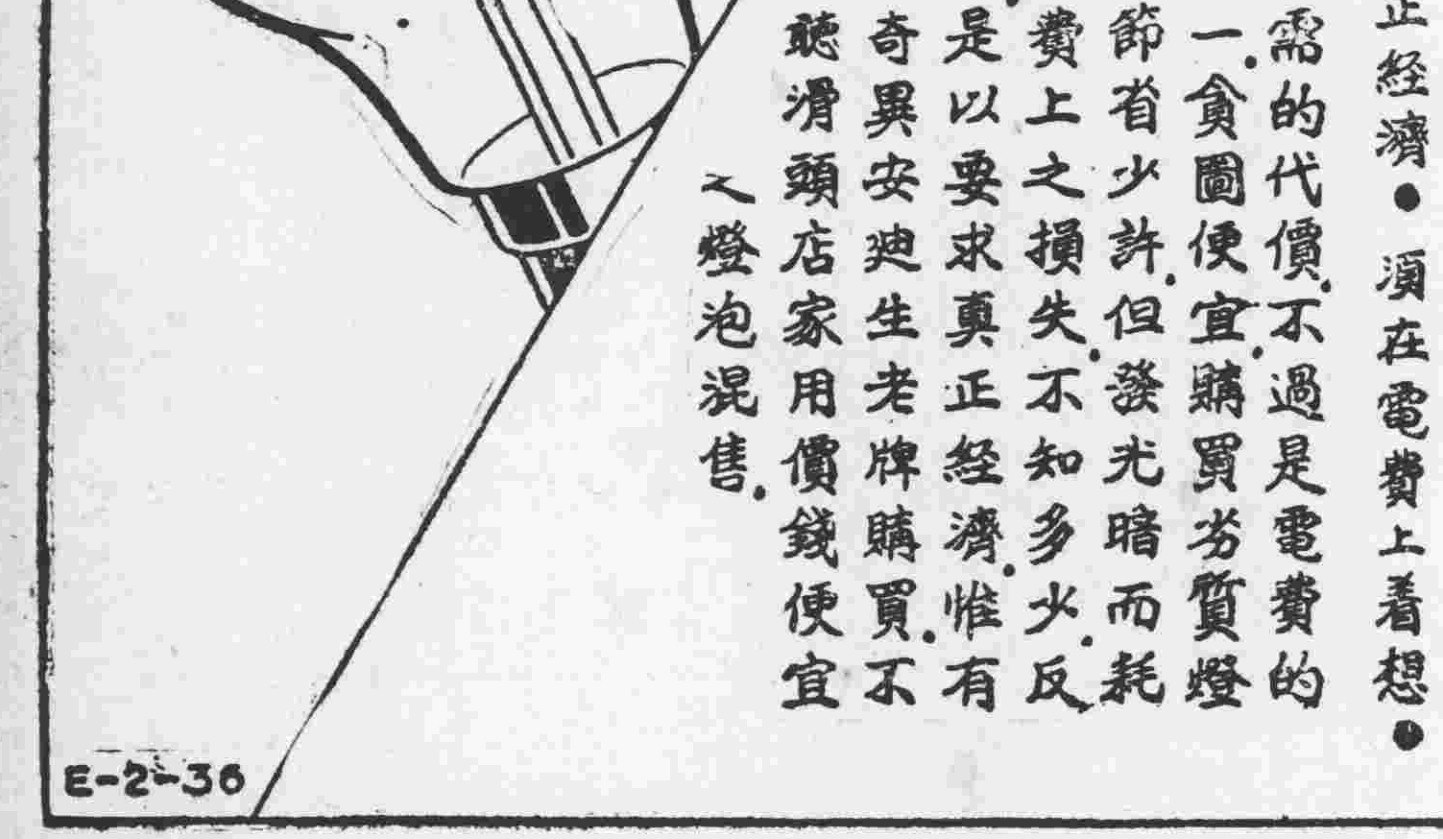 正経濟●須在電費上着想●
需的代價.不過是電費的
一.貪圖便宜.購買劣質燈
節省少許.但發光暗而耗
費上之損失.不知多少.反
是以要求真正経濟.惟有
奇異安廸生老牌購買.不
聴滑頭店家用價錢便宜
之燈泡混售.
E-2-36